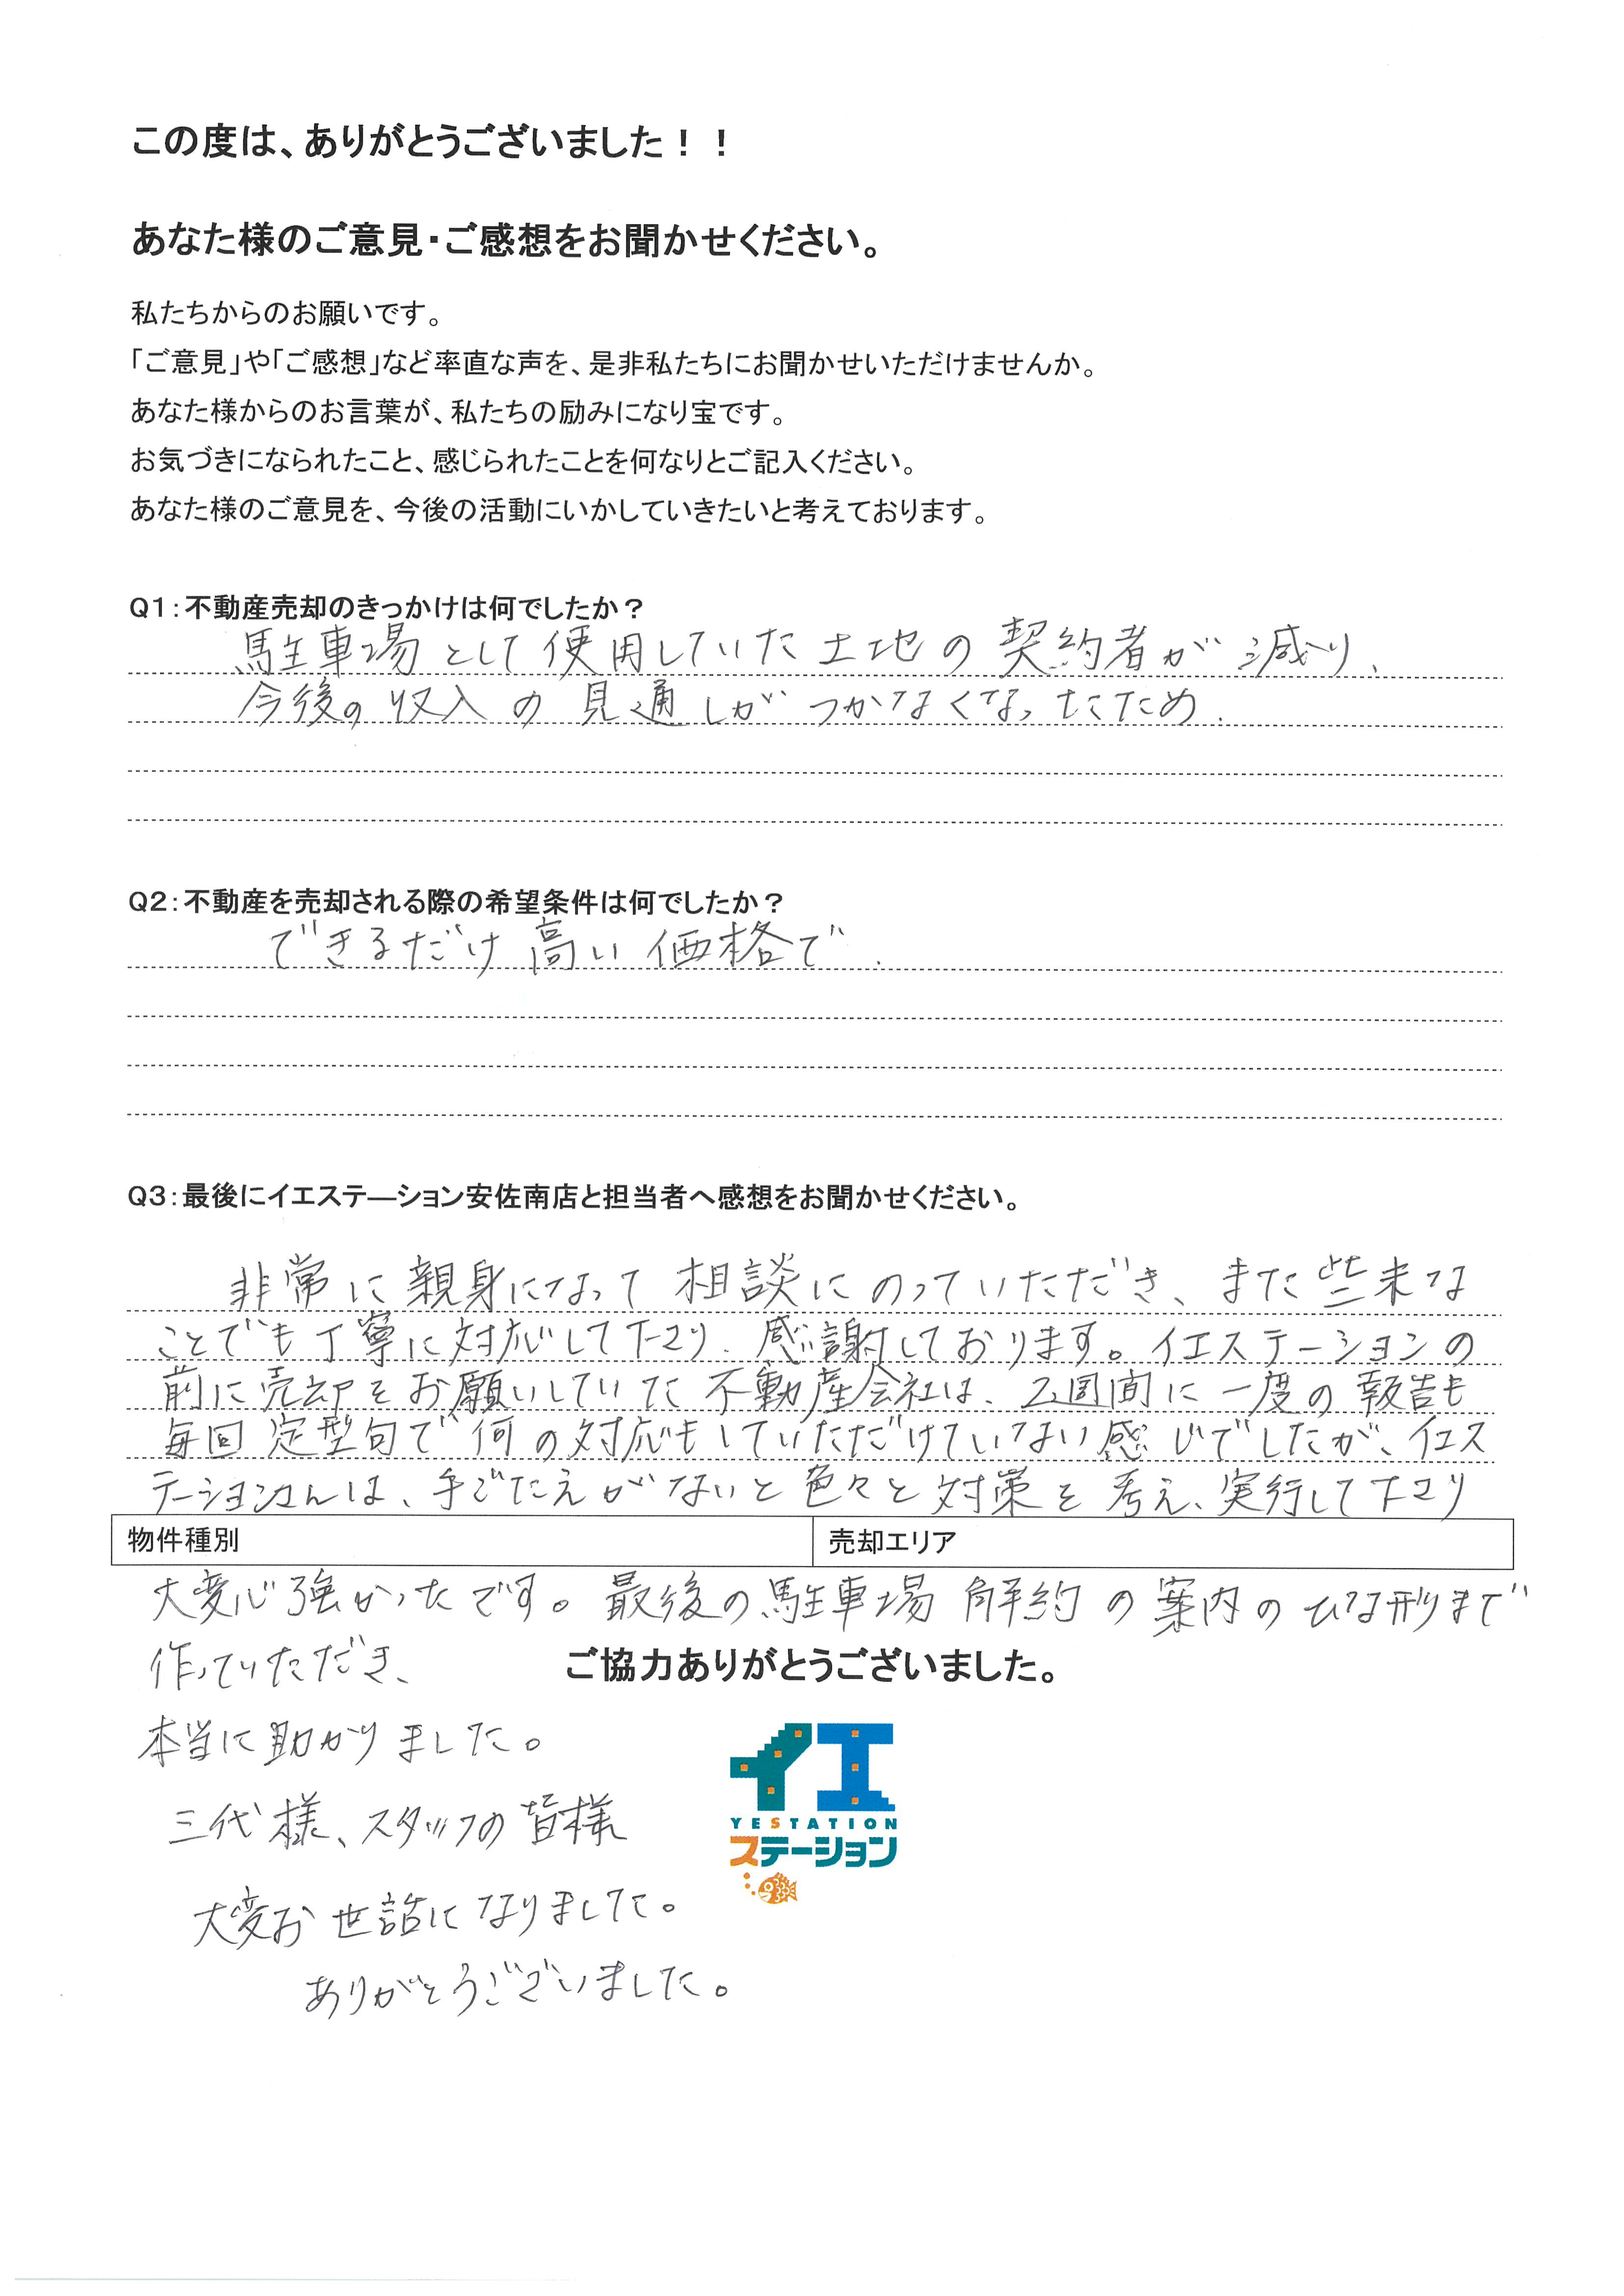 この度は、ありがとうございました！！
あなた様のご意見・ご感想をお聞かせください。
私たちからのお願いです。
「ご意見」や「ご感想」など率直な声を、是非私たちにお聞かせいただけませんか。
あなた様からのお言葉が、私たちの励みになり宝です。
お気づきになられたこと、感じられたことを何なりとご記入ください。
あなた様のご意見を、今後の活動にいかしていきたいと考えております。
Q1：不動産売却のきっかけは何でしたか？
駐車場として使用していた土地の契約者が減り、
今後の収入の見通しがつかなくなったため．
Q2：不動産を売却される際の希望条件は何でしたか？
できるだけ高い価格で．
Q3：最後にイエステーション安佐南店と担当者へ感想をお聞かせください。
非常に親身になって相談にのっていただき、また些末な
ことでも丁寧に対応して下さり、感謝しております。イエステーションの
前に売却をお願いしていた不動産会社は、2週間に一度の報告も
毎回定型句で何の対応もしていただけていない感じでしたが、イエス
テーションさんは、手ごたえがないと色々と対策を考え、実行して下さり
物件種別
売却エリア
大変心強かったです。最後の駐車場解約の案内のひな形まで
作っていただき、
ご協力ありがとうございました。
本当に助かりました。
三代様、スタッフの皆様
大変お世話になりました。
ありがとうございました。
イエ
YESTATION
ステーション